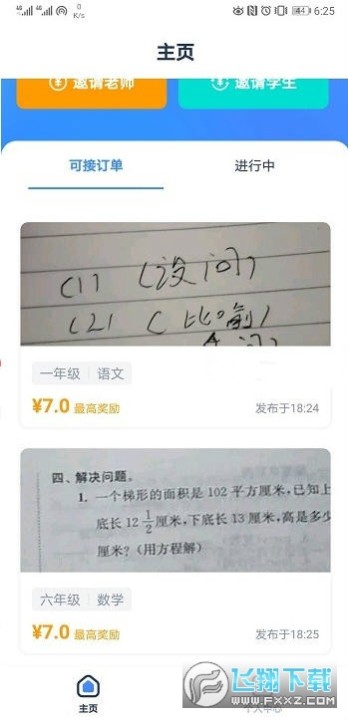 0
K/s
6:25
主页
邀请老师
邀请学生
可接订单
进行中
(1) (设问)
(2) (比喻)
一年级 语文
¥7.0 最高奖励
发布于18:24
四、解决问题。
1. 一个梯形的面积是 102 平方厘米,已知上
底长 12 1/2 厘米,下底长 13 厘米,高是多少
厘米?(用方程解)
六年级 数学
¥7.0 最高奖励
发布于18:25
主页
个人中心
飞翔下载
WWW.FXXZ.COM